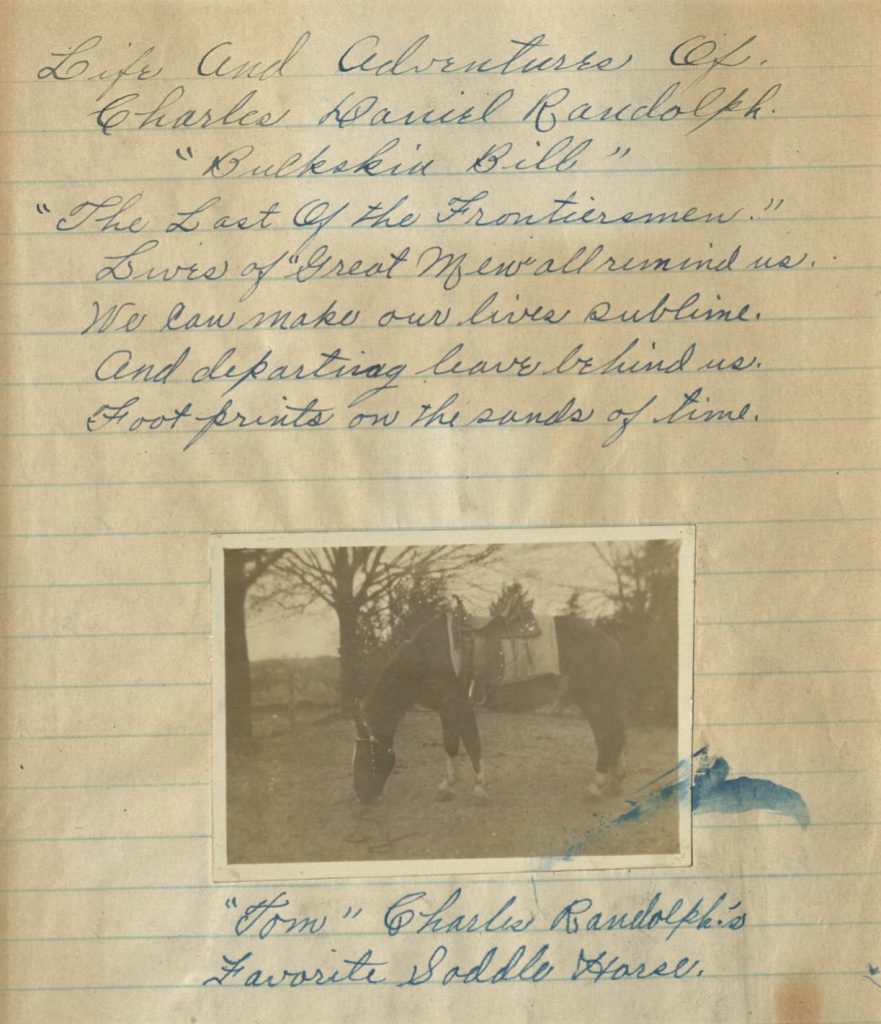 Life And Adventures Of.
Charles Daniel Randolph.
"Buckskin Bill"
"The Last Of the Frontiersmen."
Lives of "Great Men" all remind us.
We Can make our lives sublime.
And departing leave behind us.
Foot prints on the sands of time.
"Tom" Charles Randolph's
Favorite Saddle Horse.